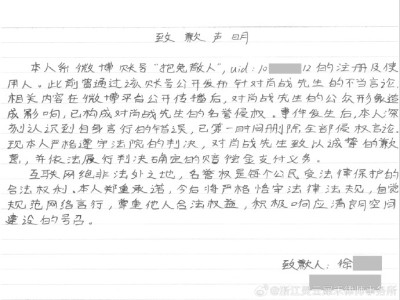 致歉声明
本人系微博账号“抱兔敲人”，uid：10 12的注册及使
用人。此前曾通过该账号公开发布针对肖战先生的不当言论，
相关内容在微博平台公开传播后，对肖战先生的公众形象造
成影响，已构成对肖战先生的名誉侵权。事件发生后，本人深
刻认识到自身言行的错误，已第一时间删除全部侵权言论。
现本人严格遵守法院的判决，对肖战先生致以诚挚的歉
意，并依法履行判决确定的赔偿金支付义务。
互联网绝非法外之地，名誉权是每个公民受法律保护的
合法权利。本人郑重承诺，今后将严格恪守法律法规，自觉
规范网络言行，尊重他人合法权益，积极响应清朗空间
建设的号召。
致歉人：徐